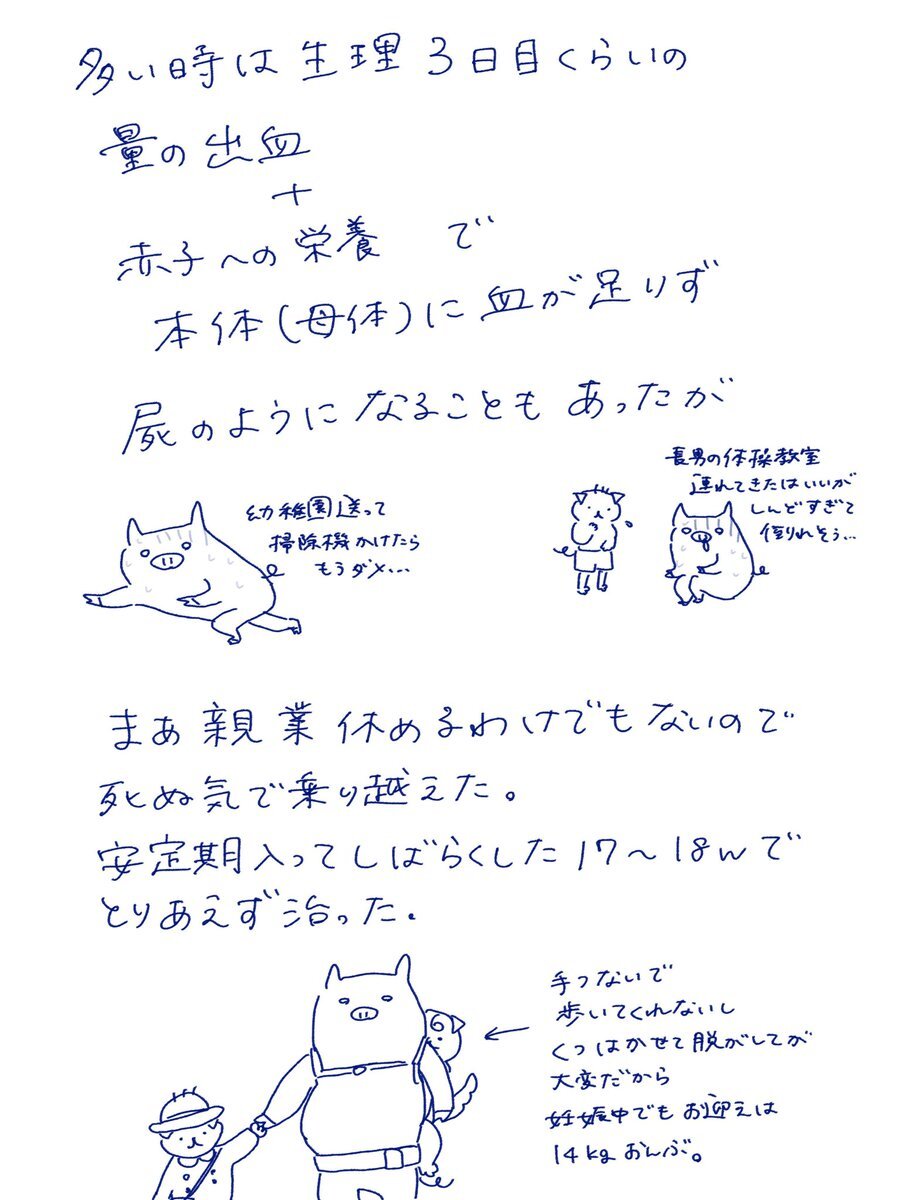 多い時は生理3日目くらいの
量の出血
+
赤子への栄養 で
本体(母体)に血が足りず
屍のようになることもあったが
長男の体操教室
連れてきたはいいが
しんどすぎて
倒れそう…
幼稚園送って
掃除機かけたら
もうダメ…
まあ親業休めるわけでもないので
死ぬ気で乗り越えた。
安定期入ってしばらくした17〜18wで
とりあえず治った.
手つないで
歩いてくれないし
くつはかせて脱がしてが
大変だから
妊娠中でもお迎えは
14kgおんぶ。